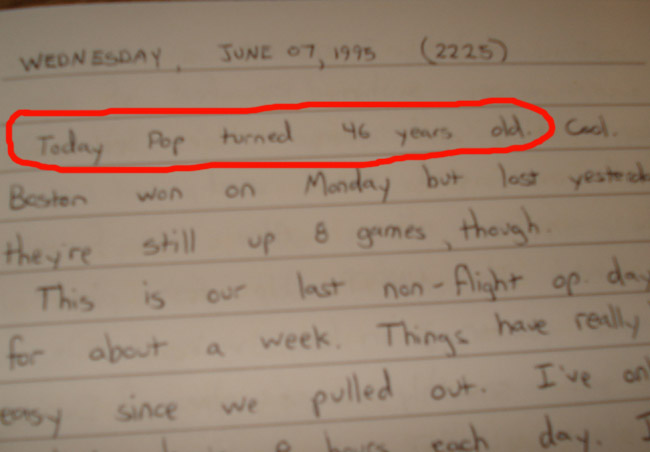 WEDNESDAY, JUNE 07, 1995 (2225)
Today Pop turned 46 years old. Cool.
Boston won on Monday but lost
they're still up 8 games, though.
This is our last non-flight op day
for about a week. Things have really
easy since we pulled out. I've
hours each day. I